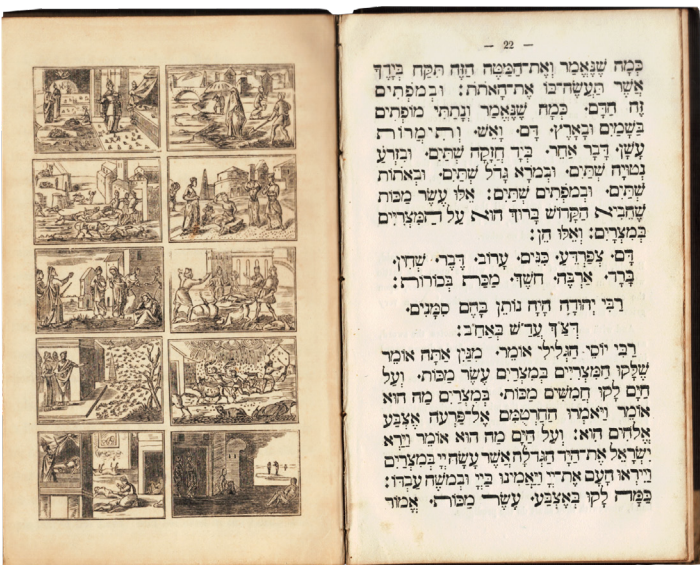 — 22 —
כְּמָה שֶׁנֶּאֱמַר וְאֶת־הַמַּטֶּה הַזֶּה תִּקַּח בְּיָדֶךָ
אֲשֶׁר תַּעֲשֶׂה־בּוֹ אֶת־הָאֹתֹת: וּבְמֹפְתִים
זֶה הַדָּם. כְּמָה שֶׁנֶּאֱמַר וְנָתַתִּי מוֹפְתִים
בַּשָּׁמַיִם וּבָאָרֶץ. דָּם. וָאֵשׁ. וְתִימְרוֹת
עָשָׁן. דָּבָר אַחֵר. בְּיָד חֲזָקָה שְׁתַּיִם. וּבִזְרֹעַ
נְטוּיָה שְׁתַּיִם. וּבְמֹרָא גָּדֹל שְׁתַּיִם. וּבְאֹתוֹת
שְׁתַּיִם. וּבְמֹפְתִים שְׁתַּיִם: אֵלּוּ עֶשֶׂר מַכּוֹת
שֶׁהֵבִיא הַקָּדוֹשׁ בָּרוּךְ הוּא עַל הַמִּצְרִיִּים
בְּמִצְרַיִם: וְאֵלּוּ הֵן:
דָּם. צְפַרְדֵּעַ. כִּנִּים. עָרוֹב. דֶּבֶר. שְׁחִין.
בָּרָד. אַרְבֶּה. חֹשֶׁךְ. מַכַּת בְּכוֹרוֹת:
רַבִּי יְהוּדָה הָיָה נוֹתֵן בָּהֶם סִמָּנִים.
דְּצַ״ךְ עֲדַ״שׁ בְּאַחַ״ב:
רַבִּי יוֹסֵי הַגְּלִילִי אוֹמֵר. מִנַּיִן אַתָּה אוֹמֵר
שֶׁלָּקוּ הַמִּצְרִיִּים בְּמִצְרַיִם עֶשֶׂר מַכּוֹת. וְעַל
הַיָּם לָקוּ חֲמִשִּׁים מַכּוֹת. בְּמִצְרַיִם מַה הוּא
אוֹמֵר וַיֹּאמְרוּ הַחַרְטֻמִּם אֶל־פַּרְעֹה אֶצְבַּע
אֱלֹהִים הִוא: וְעַל הַיָּם מַה הוּא אוֹמֵר וַיַּרְא
יִשְׂרָאֵל אֶת־הַיָּד הַגְּדֹלָה אֲשֶׁר עָשָׂה יְיָ בְּמִצְרַיִם
וַיִּירְאוּ הָעָם אֶת־יְיָ וַיַּאֲמִינוּ בַּייָ וּבְמֹשֶׁה עַבְדּוֹ:
כַּמָּה לָקוּ בְּאֶצְבַּע. עֶשֶׂר מַכּוֹת. אֱמוֹר